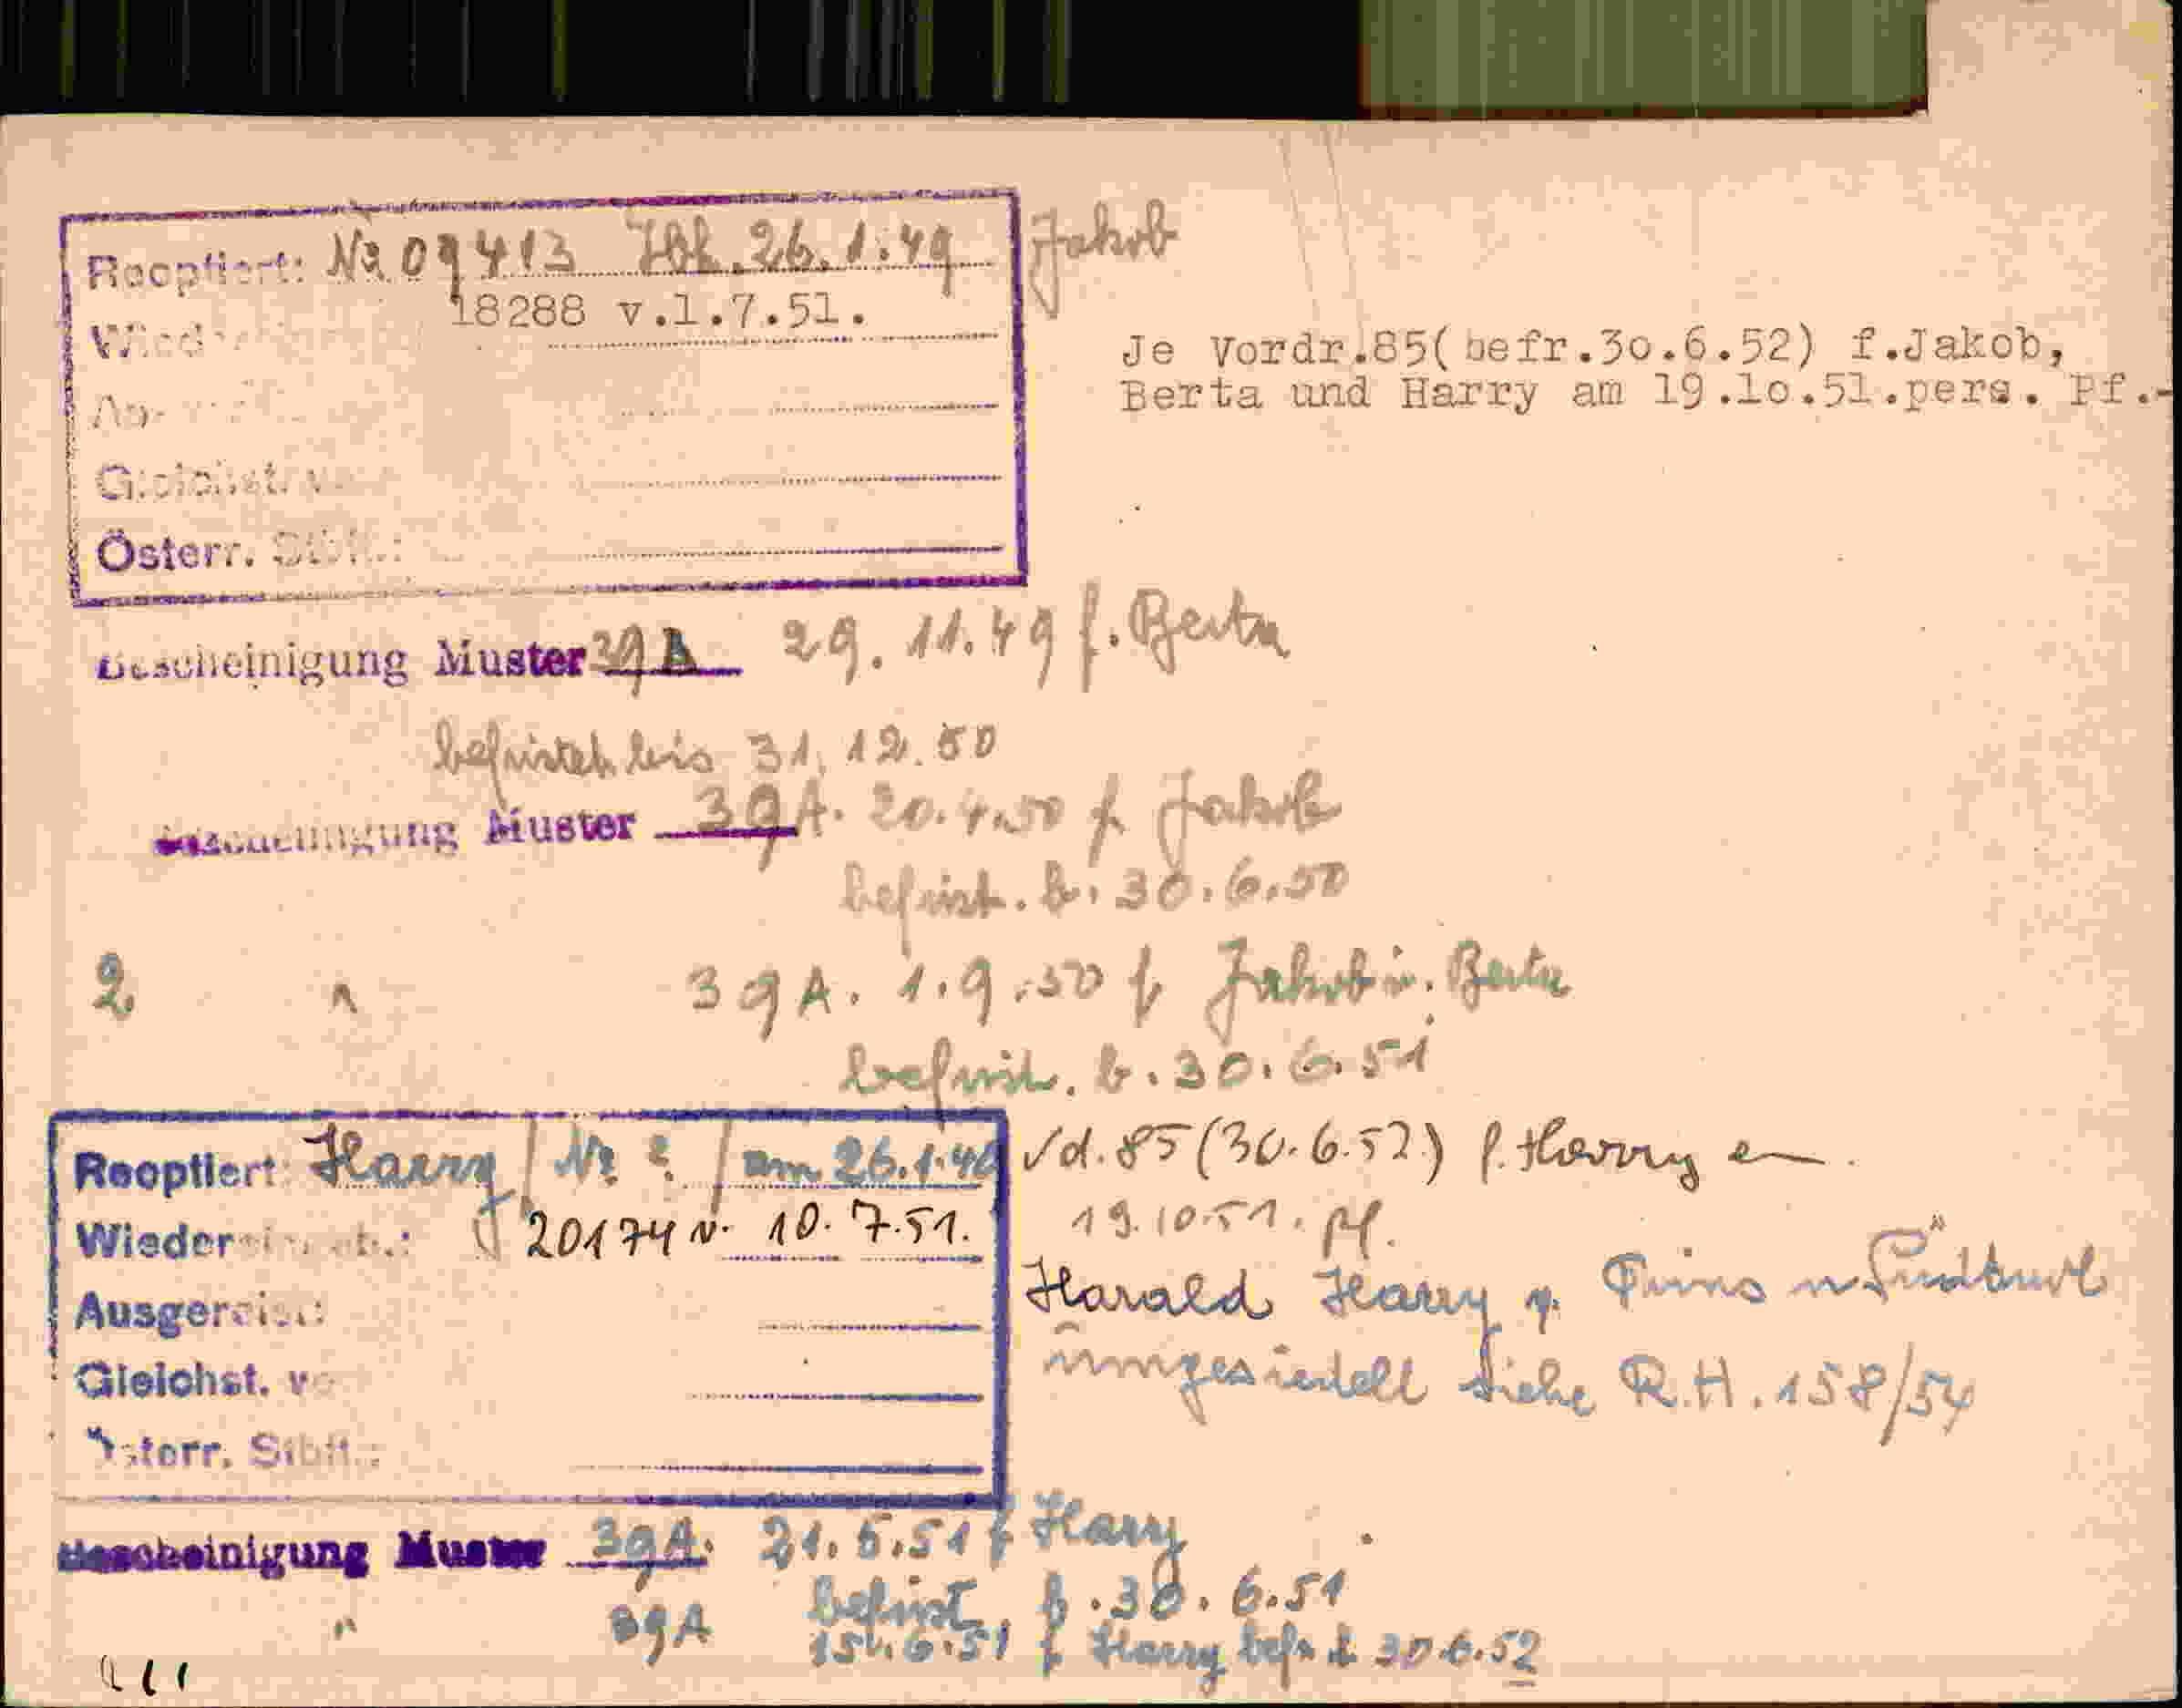 Reoptiert: No 09413 Ibk. 26.1.49 Jakob
18288 v.1.7.51.
Wied
Je Vordr.85(befr.30.6.52) f.Jakob,
Berta und Harry am 19.10.51.pers. Pf.-
Gleichst. v
Österr. Stbft.:
Bescheinigung Muster 39A 29.11.49 f. Berta
befristet bis 31.12.50
Bescheinigung Muster 39A. 20.4.50 f Jakob
befrist. b. 30.6.50
2 " 39A. 1.9.50 f Jakob u. Berta
befrist. b. 30.6.51
Reoptiert: Harry / No ? / am 26.1.49 Vd. 85 (30.6.52) f. Harry
Wieder 20174 v. 10.7.51. 19.10.51. pf.
Ausgereist: Harald Harry n. Südtirol
Gleichst. v umgesiedelt siehe R.H. 158/54
Österr. Stbft.:
Bescheinigung Muster 39A. 21.5.51 f Harry
befrist. b. 30.6.51
" 39A 15.6.51 f Harry befr b 30.6.52